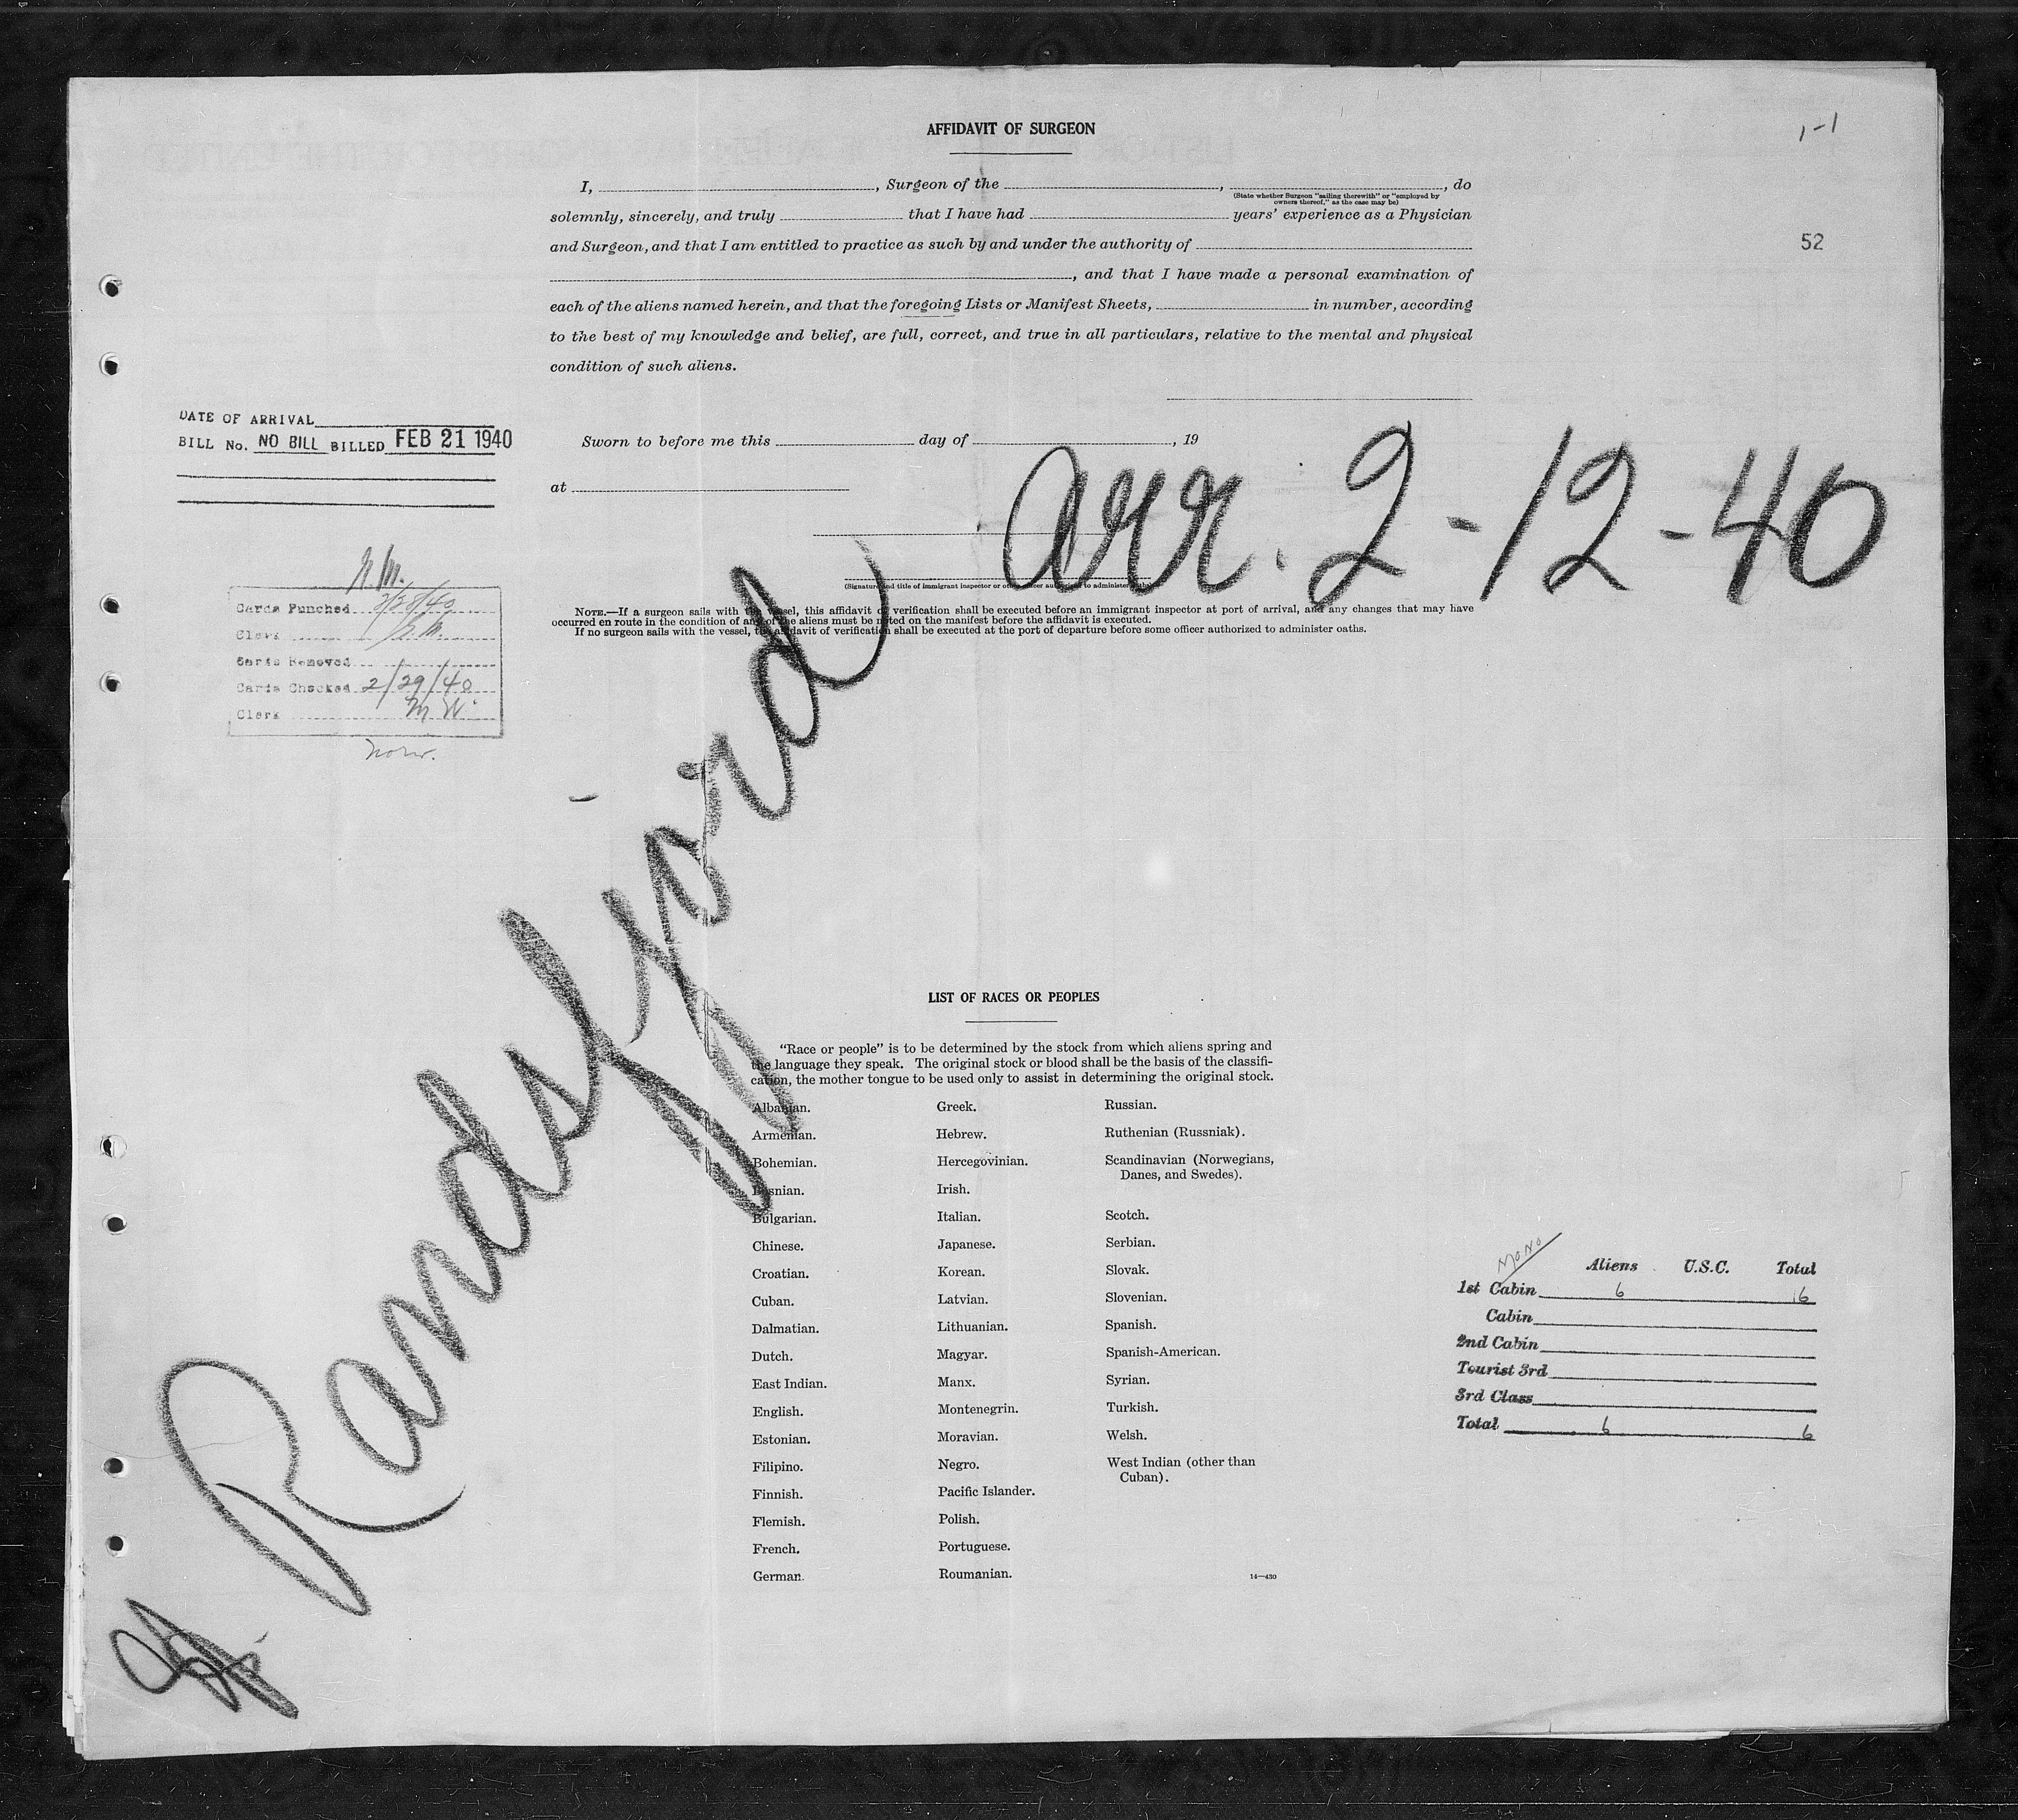 AFFIDAVIT OF SURGEON
1-1
I, , Surgeon of the , , do
(State whether Surgeon "sailing therewith" or "employed by
owners thereof," as the case may be)
solemnly, sincerely, and truly that I have had years' experience as a Physician
and Surgeon, and that I am entitled to practice as such by and under the authority of
52
, and that I have made a personal examination of
each of the aliens named herein, and that the foregoing Lists or Manifest Sheets, in number, according
to the best of my knowledge and belief, are full, correct, and true in all particulars, relative to the mental and physical
condition of such aliens.
DATE OF ARRIVAL
BILL No. NO BILL BILLED FEB 21 1940
Sworn to before me this day of , 19
at
arr. 2-12-40
(Signature and title of immigrant inspector or other officer authorized to administer oaths)
NOTE.—If a surgeon sails with the vessel, this affidavit of verification shall be executed before an immigrant inspector at port of arrival, and any changes that may have
occurred en route in the condition of any of the aliens must be noted on the manifest before the affidavit is executed.
If no surgeon sails with the vessel, the affidavit of verification shall be executed at the port of departure before some officer authorized to administer oaths.
Cards Punched 2/28/40
Clerk
Cards Removed
Cards Checked 2/29/40
Clerk M W
Norw.
Randsfjord
LIST OF RACES OR PEOPLES
"Race or people" is to be determined by the stock from which aliens spring and
the language they speak. The original stock or blood shall be the basis of the classifi-
cation, the mother tongue to be used only to assist in determining the original stock.
Albanian.
Armenian.
Bohemian.
Bosnian.
Bulgarian.
Chinese.
Croatian.
Cuban.
Dalmatian.
Dutch.
East Indian.
English.
Estonian.
Filipino.
Finnish.
Flemish.
French.
German.
Greek.
Hebrew.
Hercegovinian.
Irish.
Italian.
Japanese.
Korean.
Latvian.
Lithuanian.
Magyar.
Manx.
Montenegrin.
Moravian.
Negro.
Pacific Islander.
Polish.
Portuguese.
Roumanian.
Russian.
Ruthenian (Russniak).
Scandinavian (Norwegians,
Danes, and Swedes).
Scotch.
Serbian.
Slovak.
Slovenian.
Spanish.
Spanish-American.
Syrian.
Turkish.
Welsh.
West Indian (other than
Cuban).
14—430
MONO
Aliens U.S.C. Total
1st Cabin 6 6
Cabin
2nd Cabin
Tourist 3rd
3rd Class
Total 6 6